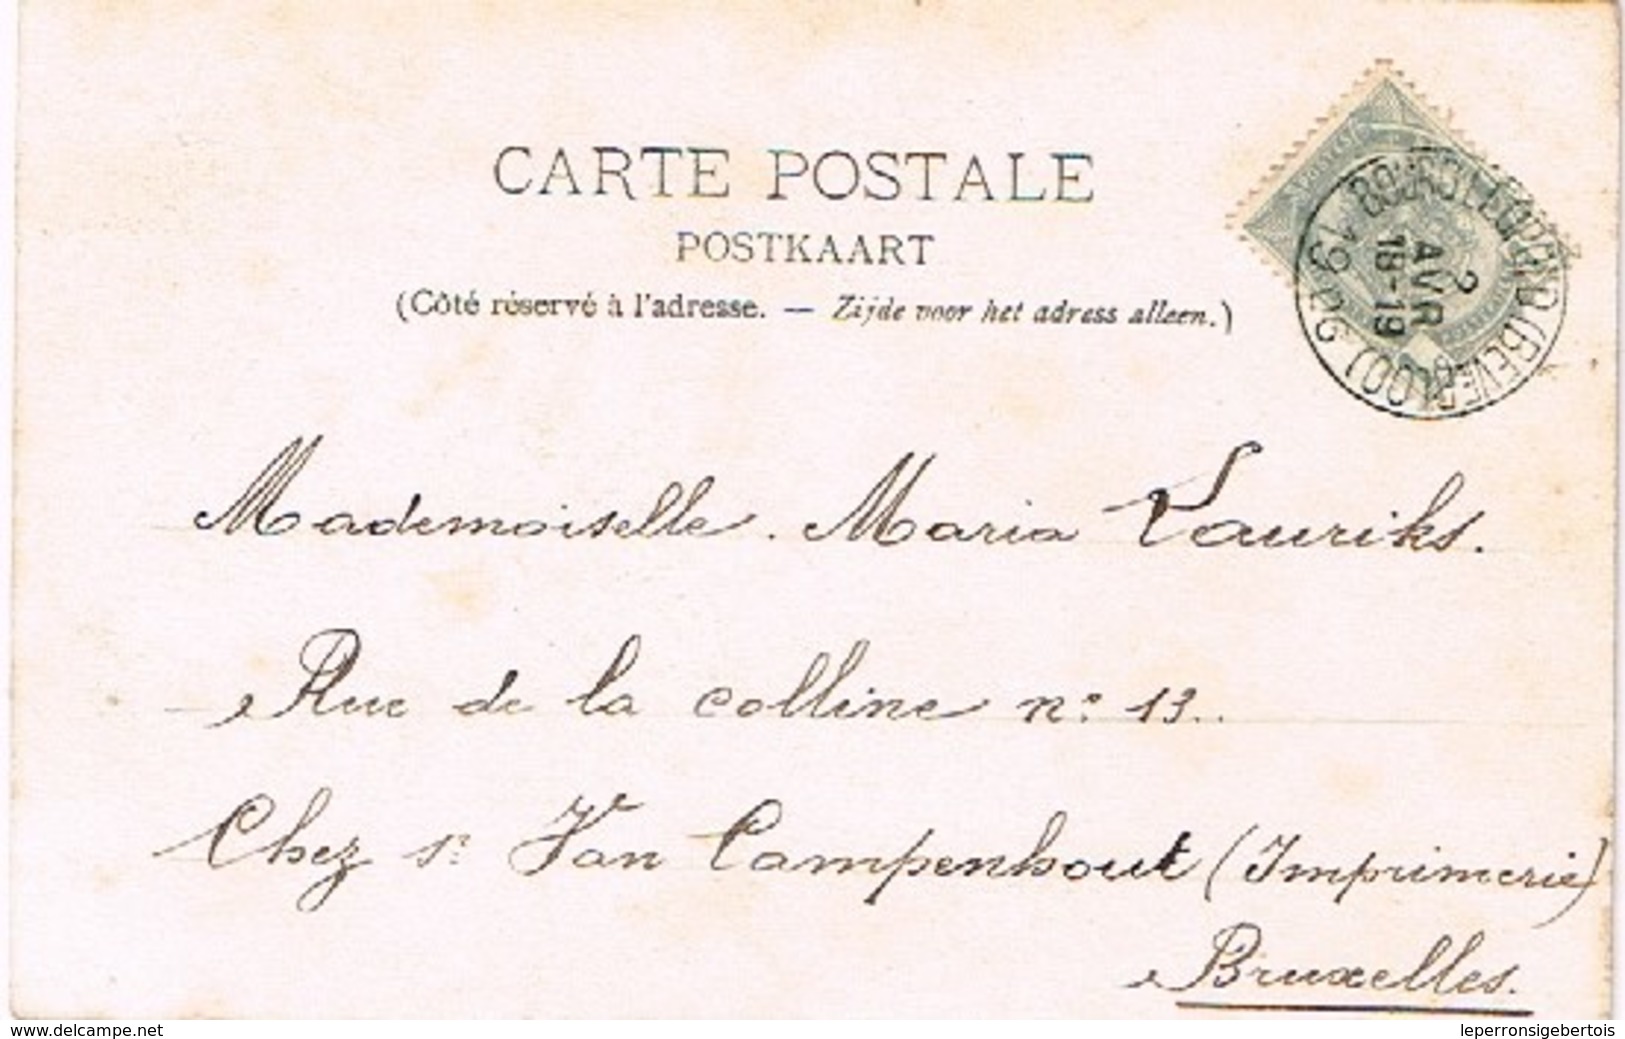 CARTE POSTALE
POSTKAART
(Côté réservé à l'adresse. — Zijde voor het adress alleen.)
POSTES
BOURG LEOPOLD (BEVERLOO)
2
AVR
18-19
1906
Mademoiselle. Maria Lauriks.
Rue de la colline n° 13.
Chez Sr Van Campenhout (Imprimerie)
Bruxelles.
www.delcampe.net
leperronsigebertois